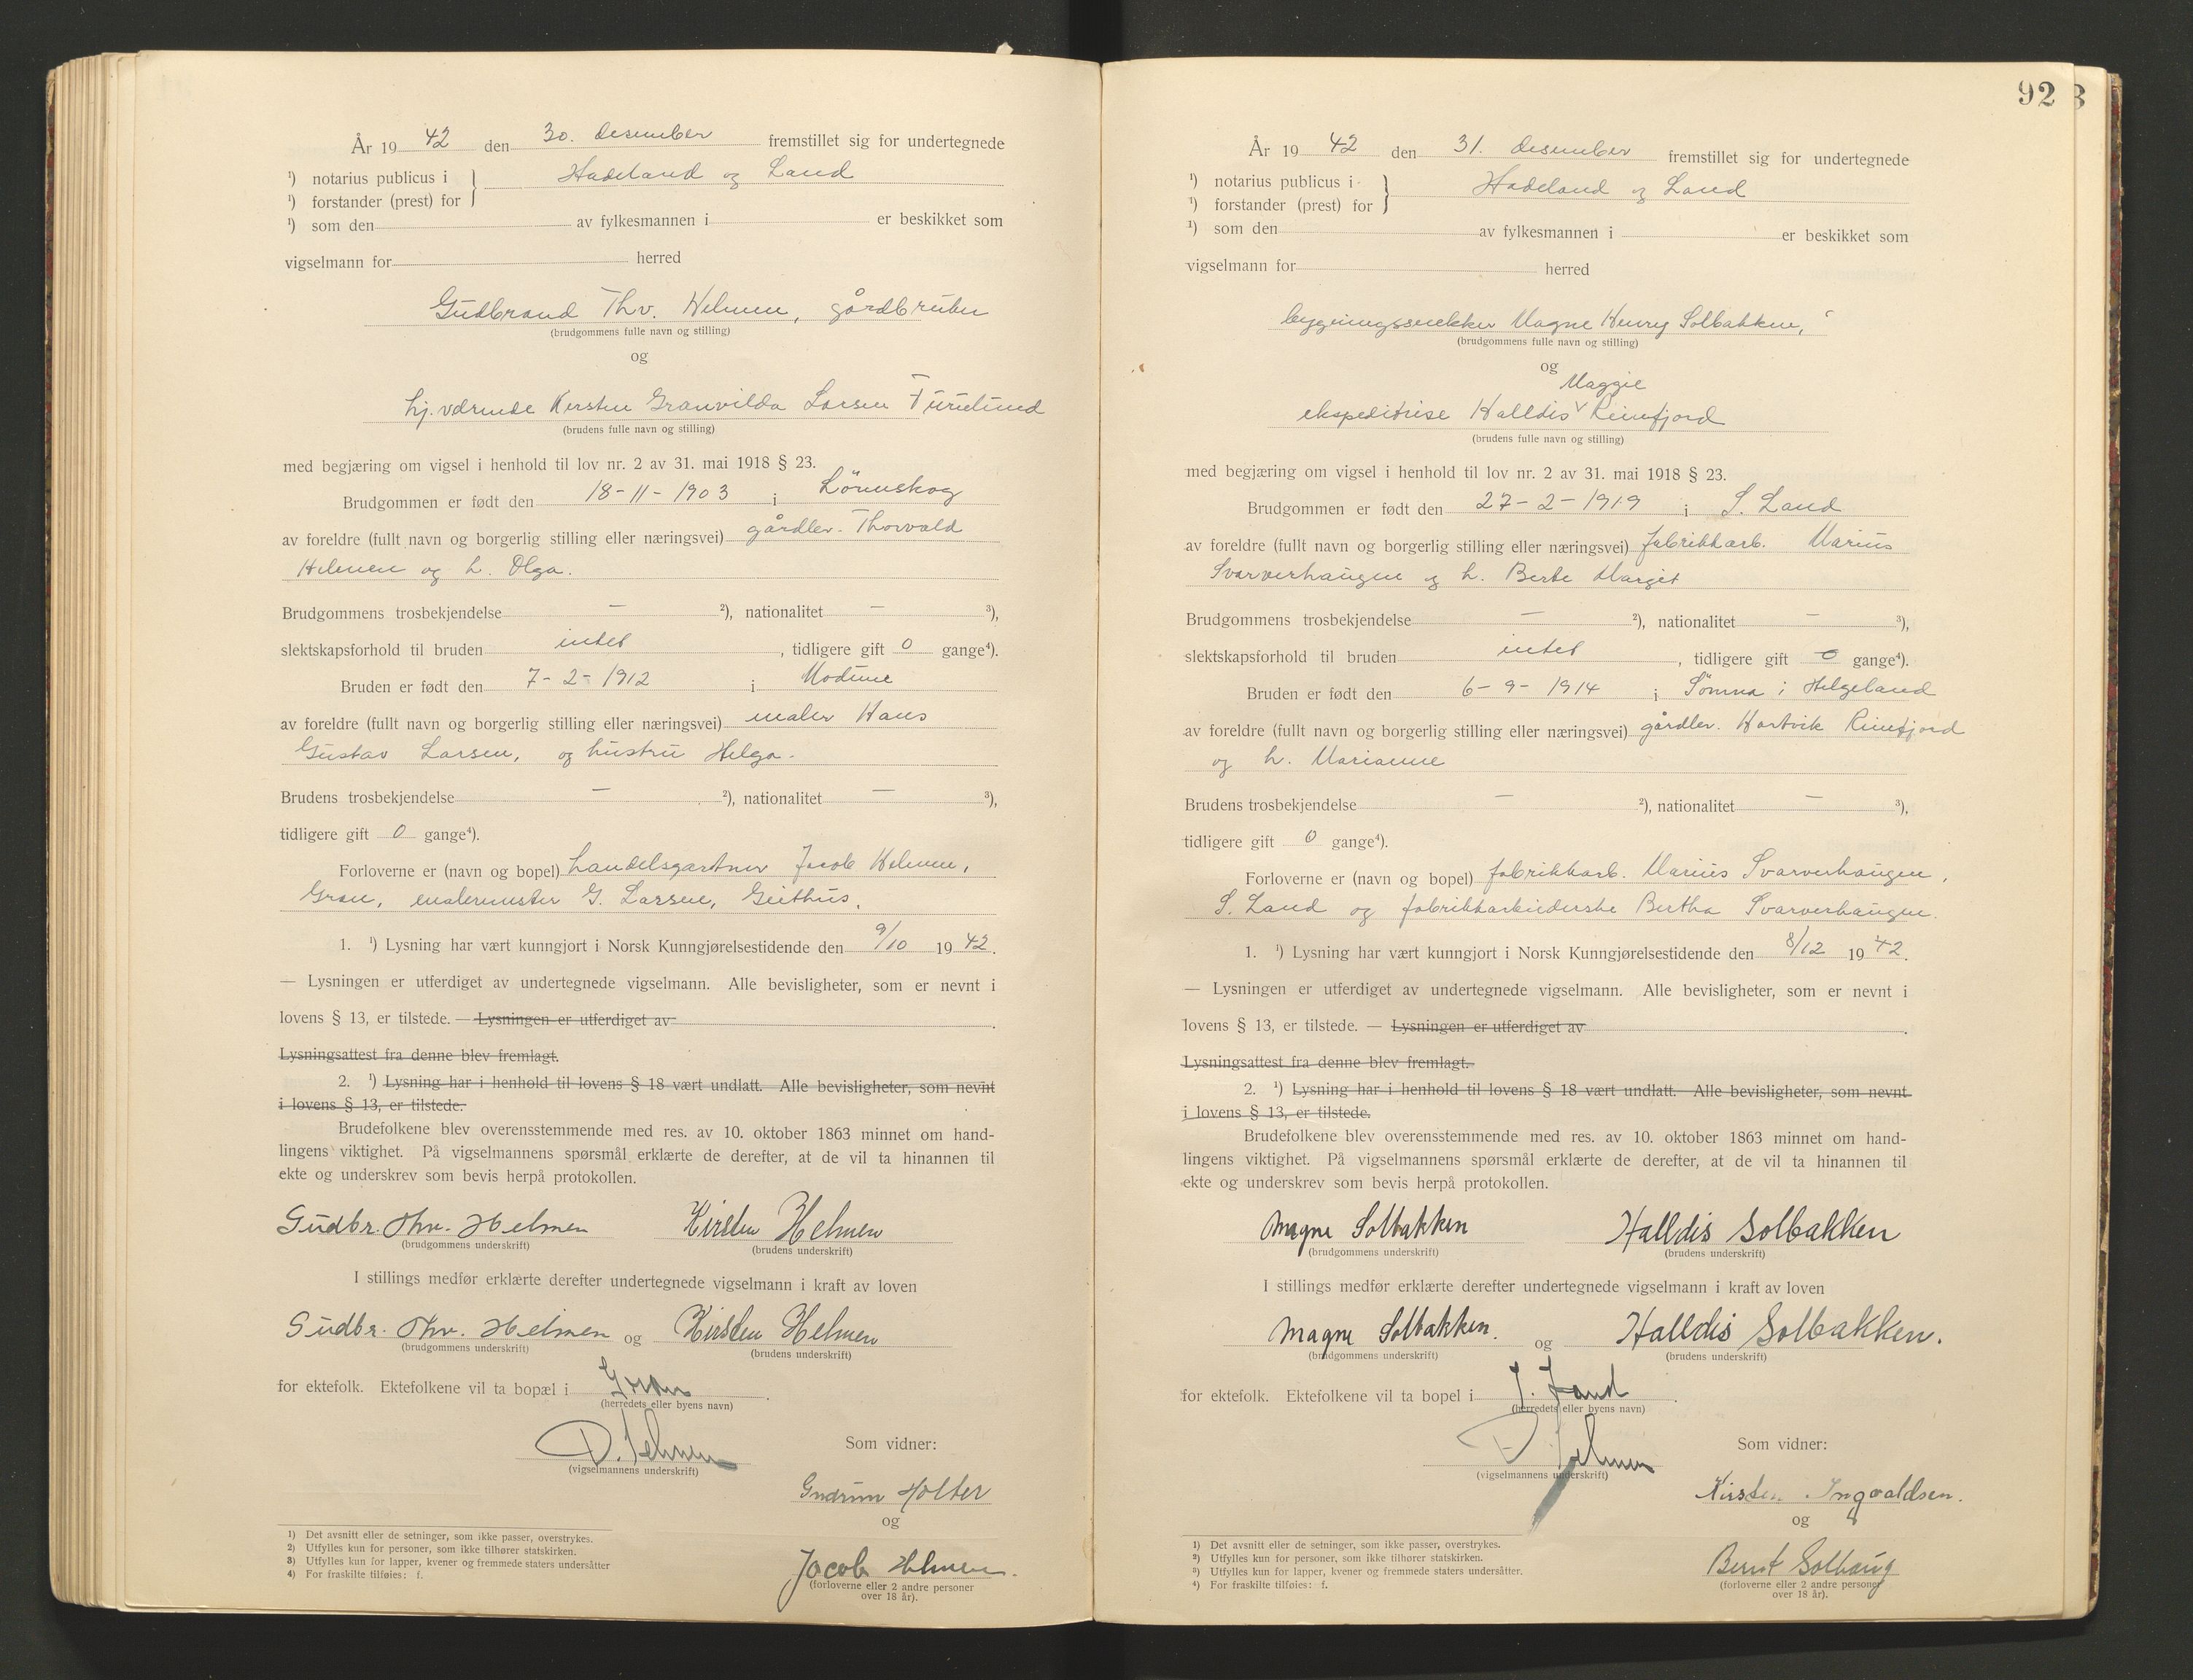 År 19 42 den 30. desember fremstillet sig for undertegnede
¹) notarius publicus i
¹) forstander (prest) for
Hadeland og Land
¹) som den av fylkesmannen i er beskikket som
vigselmann for herred
Gudbrand Thv. Helmen, gårdbruker
(brudgommens fulle navn og stilling)
og
hj.værende Kirsten Granvilda Larsen Furulund
(brudens fulle navn og stilling)
med begjæring om vigsel i henhold til lov nr. 2 av 31. mai 1918 § 23.
Brudgommen er født den 18-11-1903 i Lörenskog
av foreldre (fullt navn og borgerlig stilling eller næringsvei) gårdbr. Thorvald
Helmen og h. Olga.
Brudgommens trosbekjendelse — ²), nationalitet — ³),
slektskapsforhold til bruden intet, tidligere gift 0 gange⁴).
Bruden er født den 7-2-1912 i Modum
av foreldre (fullt navn og borgerlig stilling eller næringsvei) maler Hans
Gustav Larsen, og hustru Helga.
Brudens trosbekjendelse — ²), nationalitet — ³),
tidligere gift 0 gange⁴).
Forloverne er (navn og bopel) handelsgartner Jacob Helmen,
Gran, malermester G. Larsen, Geithus.
1. ¹) Lysning har vært kunngjort i Norsk Kunngjørelsestidende den 9/10 19 42.
— Lysningen er utferdiget av undertegnede vigselmann. Alle bevisligheter, som er nevnt i
lovens § 13, er tilstede. — Lysningen er utferdiget av .
Lysningsattest fra denne blev fremlagt.
2. ¹) Lysning har i henhold til lovens § 18 vært undlatt. Alle bevisligheter, som nevnt
i lovens § 13, er tilstede.
Brudefolkene blev overensstemmende med res. av 10. oktober 1863 minnet om hand-
lingens viktighet. På vigselmannens spørsmål erklærte de derefter, at de vil ta hinannen til
ekte og underskrev som bevis herpå protokollen.
Gudbr. Thv. Helmen Kirsten Helmen
(brudgommens underskrift) (brudens underskrift)
I stillings medfør erklærte derefter undertegnede vigselmann i kraft av loven
Gudbr. Thv. Helmen og Kirsten Helmen
(brudgommens underskrift) (brudens underskrift)
for ektefolk. Ektefolkene vil ta bopæl i Gran.
(herredets eller byens navn)
D. Helmen
(vigselmannens underskrift)
Som vidner:
Gudrun Holter
og
Jacob Helmen.
(forloverne eller 2 andre personer
over 18 år).
1) Det avsnitt eller de setninger, som ikke passer, overstrykes.
2) Utfylles kun for personer, som ikke tilhører statskirken.
3) Utfylles kun for lapper, kvener og fremmede staters undersåtter
4) For fraskilte tilføies: f.
92
År 19 42 den 31. desember fremstillet sig for undertegnede
¹) notarius publicus i
¹) forstander (prest) for
Hadeland og Land
¹) som den av fylkesmannen i er beskikket som
vigselmann for herred
bygningssnekker Magne Henry Solbakken,
(brudgommens fulle navn og stilling)
og
Maggie
ekspeditrise Halldis Reinfjord
(brudens fulle navn og stilling)
med begjæring om vigsel i henhold til lov nr. 2 av 31. mai 1918 § 23.
Brudgommen er født den 27-2-1919 i S. Land
av foreldre (fullt navn og borgerlig stilling eller næringsvei) fabrikkarb. Marius
Svarverhaugen og h. Berte Marget
Brudgommens trosbekjendelse — ²), nationalitet — ³),
slektskapsforhold til bruden intet, tidligere gift 0 gange⁴).
Bruden er født den 6-9-1914 i Sömna i Helgeland
av foreldre (fullt navn og borgerlig stilling eller næringsvei) gårdbr. Hartvik Reinfjord
og h. Marianne
Brudens trosbekjendelse — ²), nationalitet — ³),
tidligere gift 0 gange⁴).
Forloverne er (navn og bopel) fabrikkarb. Marius Svarverhaugen,
S. Land og fabrikkarbeiderske Bertha Svarverhaugen.
1. ¹) Lysning har vært kunngjort i Norsk Kunngjørelsestidende den 8/12 19 42.
— Lysningen er utferdiget av undertegnede vigselmann. Alle bevisligheter, som er nevnt i
lovens § 13, er tilstede. — Lysningen er utferdiget av .
Lysningsattest fra denne blev fremlagt.
2. ¹) Lysning har i henhold til lovens § 18 vært undlatt. Alle bevisligheter, som nevnt
i lovens § 13, er tilstede.
Brudefolkene blev overensstemmende med res. av 10. oktober 1863 minnet om hand-
lingens viktighet. På vigselmannens spørsmål erklærte de derefter, at de vil ta hinannen til
ekte og underskrev som bevis herpå protokollen.
Magne Solbakken Halldis Solbakken
(brudgommens underskrift) (brudens underskrift)
I stillings medfør erklærte derefter undertegnede vigselmann i kraft av loven
Magne Solbakken. og Halldis Solbakken.
(brudgommens underskrift) (brudens underskrift)
for ektefolk. Ektefolkene vil ta bopel i S. Land.
(herredets eller byens navn)
D. Helmen
(vigselmannens underskrift)
Som vidner:
Kirsten Ingvaldsen.
og
Bernt Solhaug
(forloverne eller 2 andre personer
over 18 år).
1) Det avsnitt eller de setninger, som ikke passer, overstrykes.
²) Utfylles kun for personer, som ikke tilhører statskirken.
³) Utfylles kun for lapper, kvener og fremmede staters undersåtter.
⁴) For fraskilte tilføies: f.